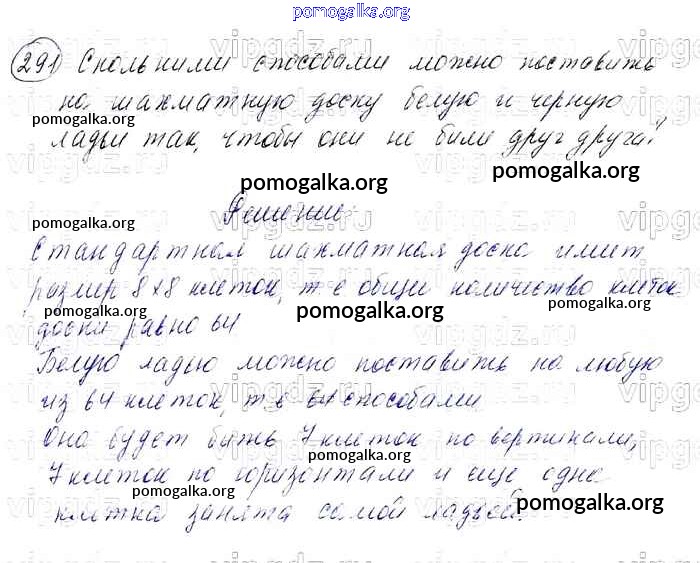 pomogalka.org
291 Сколькими способами можно поставить
на шахматную доску белую и черную
ладьи так, чтобы они не били друг друга?
pomogalka.org
pomogalka.org
pomogalka.org
Решение:
pomogalka.org
Стандартная шахматная доска имеет
размер 8×8 клеток, т е общее количество клеток
pomogalka.org
pomogalka.org
доски равно 64
Белую ладью можно поставить на любую
pomogalka.org
из 64 клеток, т.е 64 способами.
pomogalka.org
Она будет бить 7 клеток по вертикали,
pomogalka.org
7 клеток по горизонтали и еще одна
pomogalka.org
pomogalka.org
клетка занята самой ладьей.
vipgdz.ru